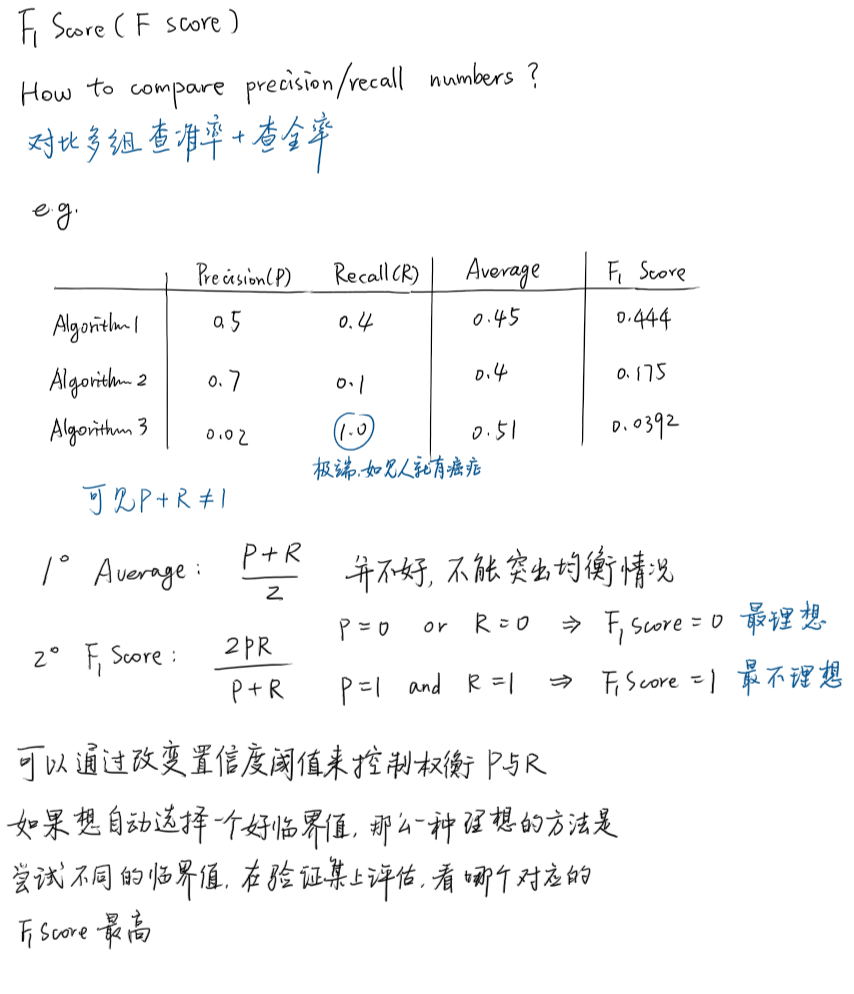 F₁ Score (F score)
How to compare precision/recall numbers ?
对比多组查准率+查全率
e.g.
Precision(P) Recall(R) Average F₁ Score
Algorithm 1 0.5 0.4 0.45 0.444
Algorithm 2 0.7 0.1 0.4 0.175
Algorithm 3 0.02 1.0 0.51 0.0392
极端.如见人就有癌症
可见P+R≠1
1° Average: (P+R)/2 并不好,不能突出均衡情况
P=0 or R=0 ⇒ F₁ score=0 最理想
2° F₁ Score: 2PR/(P+R)
P=1 and R=1 ⇒ F₁ Score=1 最不理想
可以通过改变置信度阈值来控制权衡 P与R
如果想自动选择一个好临界值,那么一种理想的方法是
尝试不同的临界值.在验证集上评估.看哪个对应的
F₁ score 最高